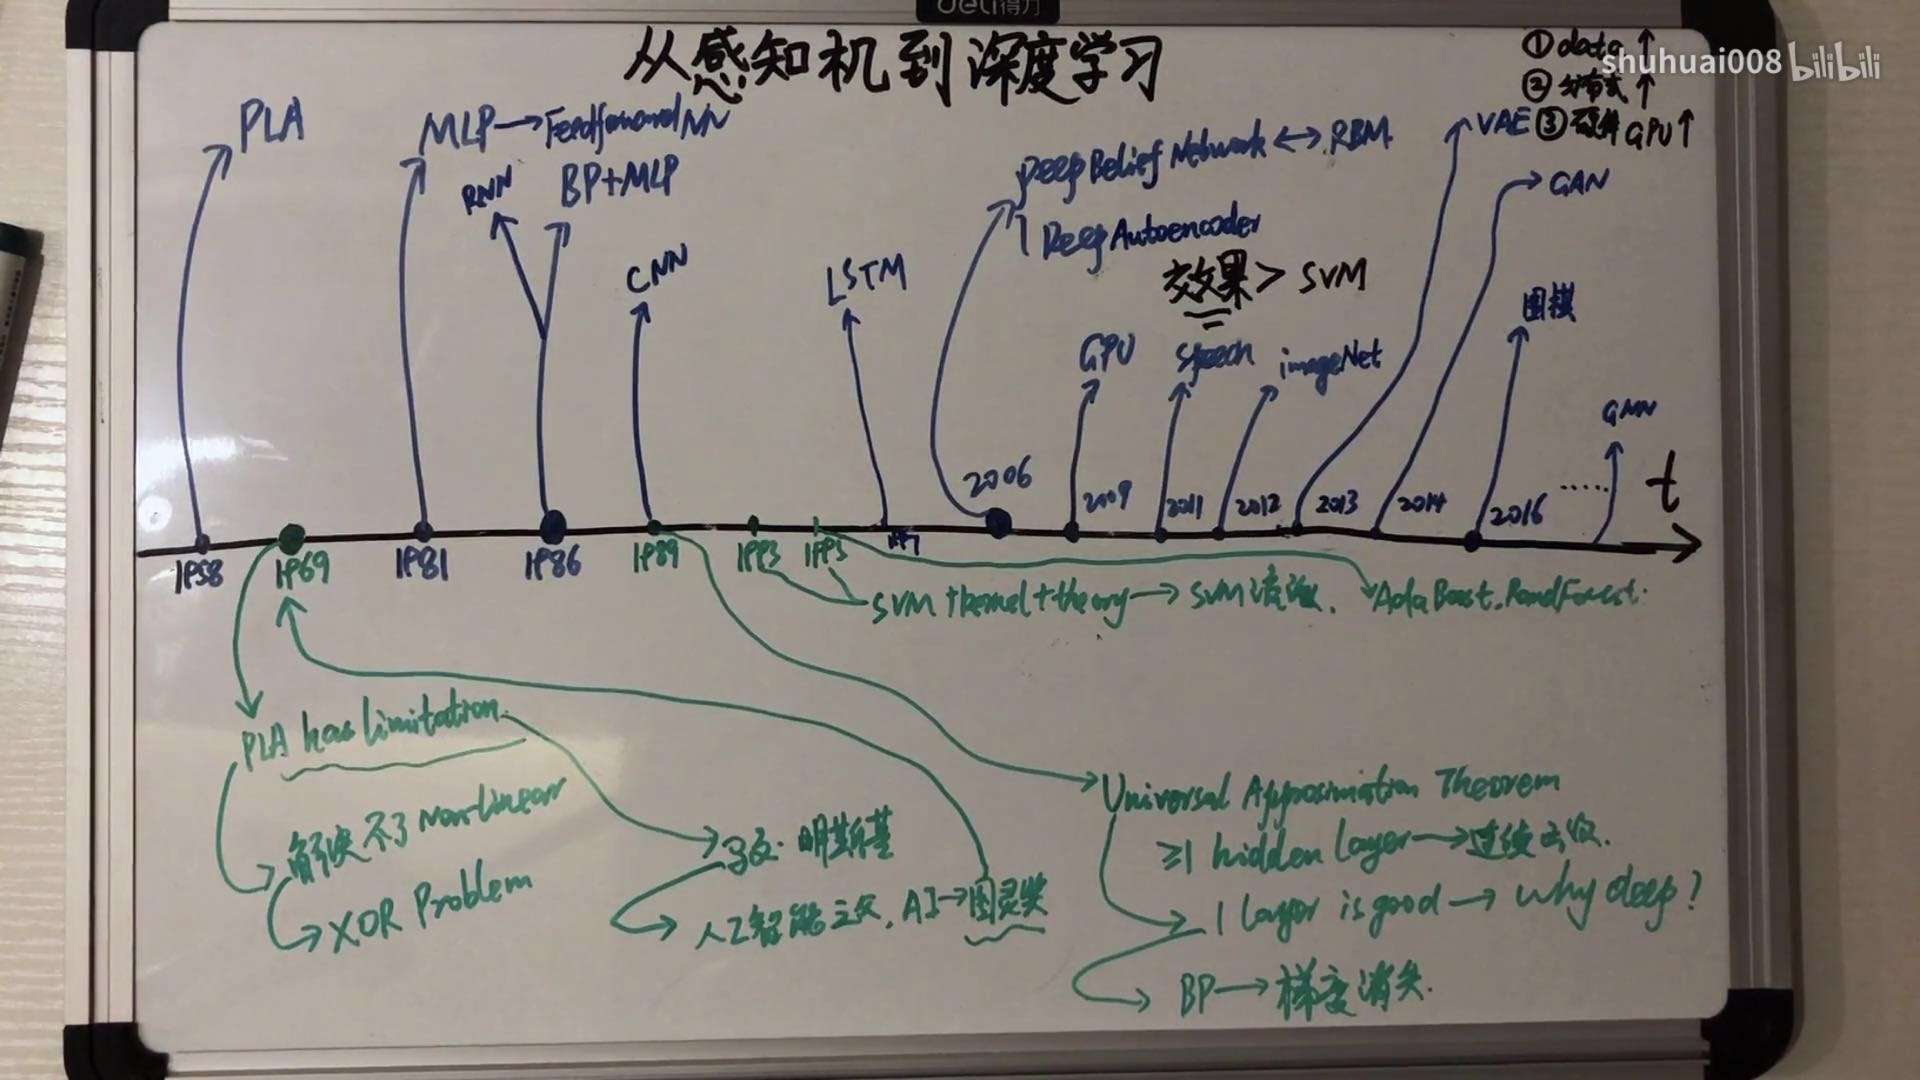 deli得力
从感知机到深度学习
① data ↑
② 分布式 ↑
③ 硬件 GPU ↑
shuhuai008 bilibili
PLA
MLP → Feedforward NN
RNN
BP+MLP
CNN
LSTM
Deep Belief Network ↔ RBM
Deep Autoencoder
效果 > SVM
GPU
speech
imageNet
VAE
GAN
围棋
GNN
t
1958
1969
1981
1986
1989
1993
1995
1997
2006
2009
2011
2012
2013
2014
2016
......
SVM + kernel + theory → SVM
AdaBoost. RandForest.
PLA has limitation.
解决不了 non-linear
XOR Problem
马文·明斯基
人工智能之父, AI → 图灵奖
Universal Approximation Theorem
≥1 hidden Layer → 连续函数.
1 Layer is good → why deep?
BP → 梯度消失.